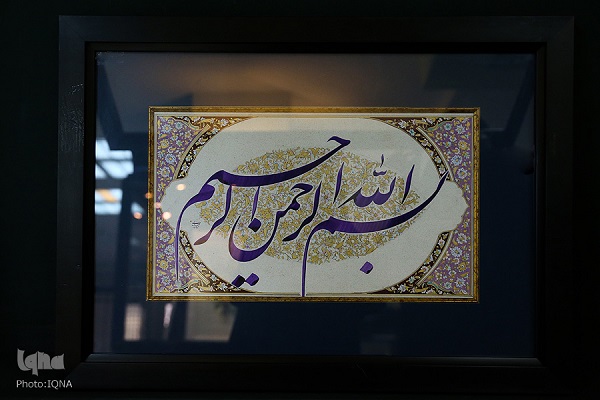 بسم الله الرحمن الرحیم
IQNA
Photo:IQNA